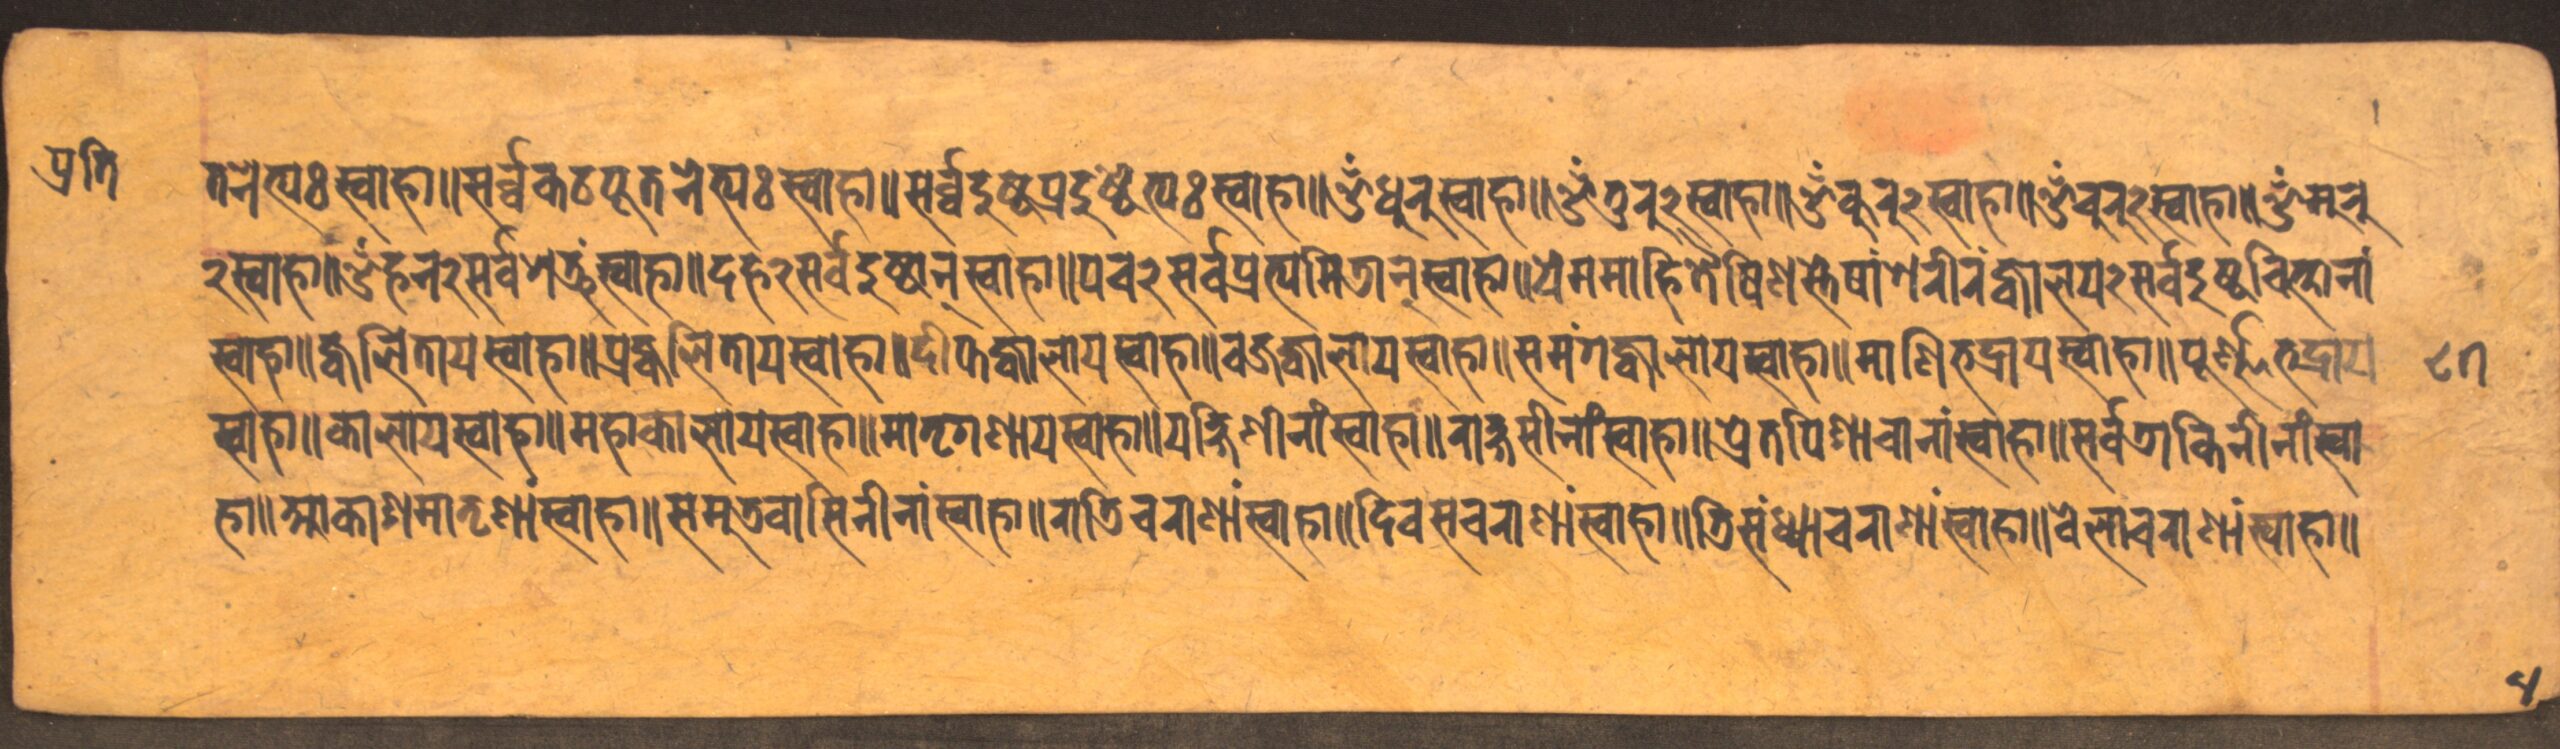 प्रति
तनेभ्यः स्वाहा॥ सर्व्वकटपूतनेभ्यः स्वाहा॥ सर्व्वदुष्टप्रदुष्टेभ्यः स्वाहा॥ ॐ धुरु स्वाहा॥ ॐ तुरु२ स्वाहा॥ ॐ कुरु२ स्वाहा॥ ॐ चुरु२ स्वाहा॥ ॐ मुरु
२ स्वाहा॥ ॐ हन२ सर्वशत्रुं स्वाहा॥ दह२ सर्वदुष्टान् स्वाहा॥ पच२ सर्वप्रत्यमित्रान् स्वाहा॥ ये ममाहितैषिणस्तेषां शरीरं ज्वालय२ सर्वदुष्टचित्तानां
स्वाहा॥ ज्वलिताय स्वाहा॥ प्रज्वलिताय स्वाहा॥ दीप्तज्वालाय स्वाहा॥ वज्रज्वालाय स्वाहा॥ समंगज्वालाय स्वाहा॥ माणिभद्राय स्वाहा॥ पूर्ण्णभद्राय
स्वाहा॥ कालाय स्वाहा॥ महाकालाय स्वाहा॥ मातृगणाय स्वाहा॥ यक्षिणीनां स्वाहा॥ राक्षसीनां स्वाहा॥ प्रेतपिशाचानां स्वाहा॥ सर्वडाकिनीनां स्वा
हा॥ आकाशमातृणां स्वाहा॥ समुद्रवासिनीनां स्वाहा॥ रात्रिचराणां स्वाहा॥ दिवसचराणां स्वाहा॥ त्रिसंध्याचराणां स्वाहा॥ वेलाचराणां स्वाहा॥